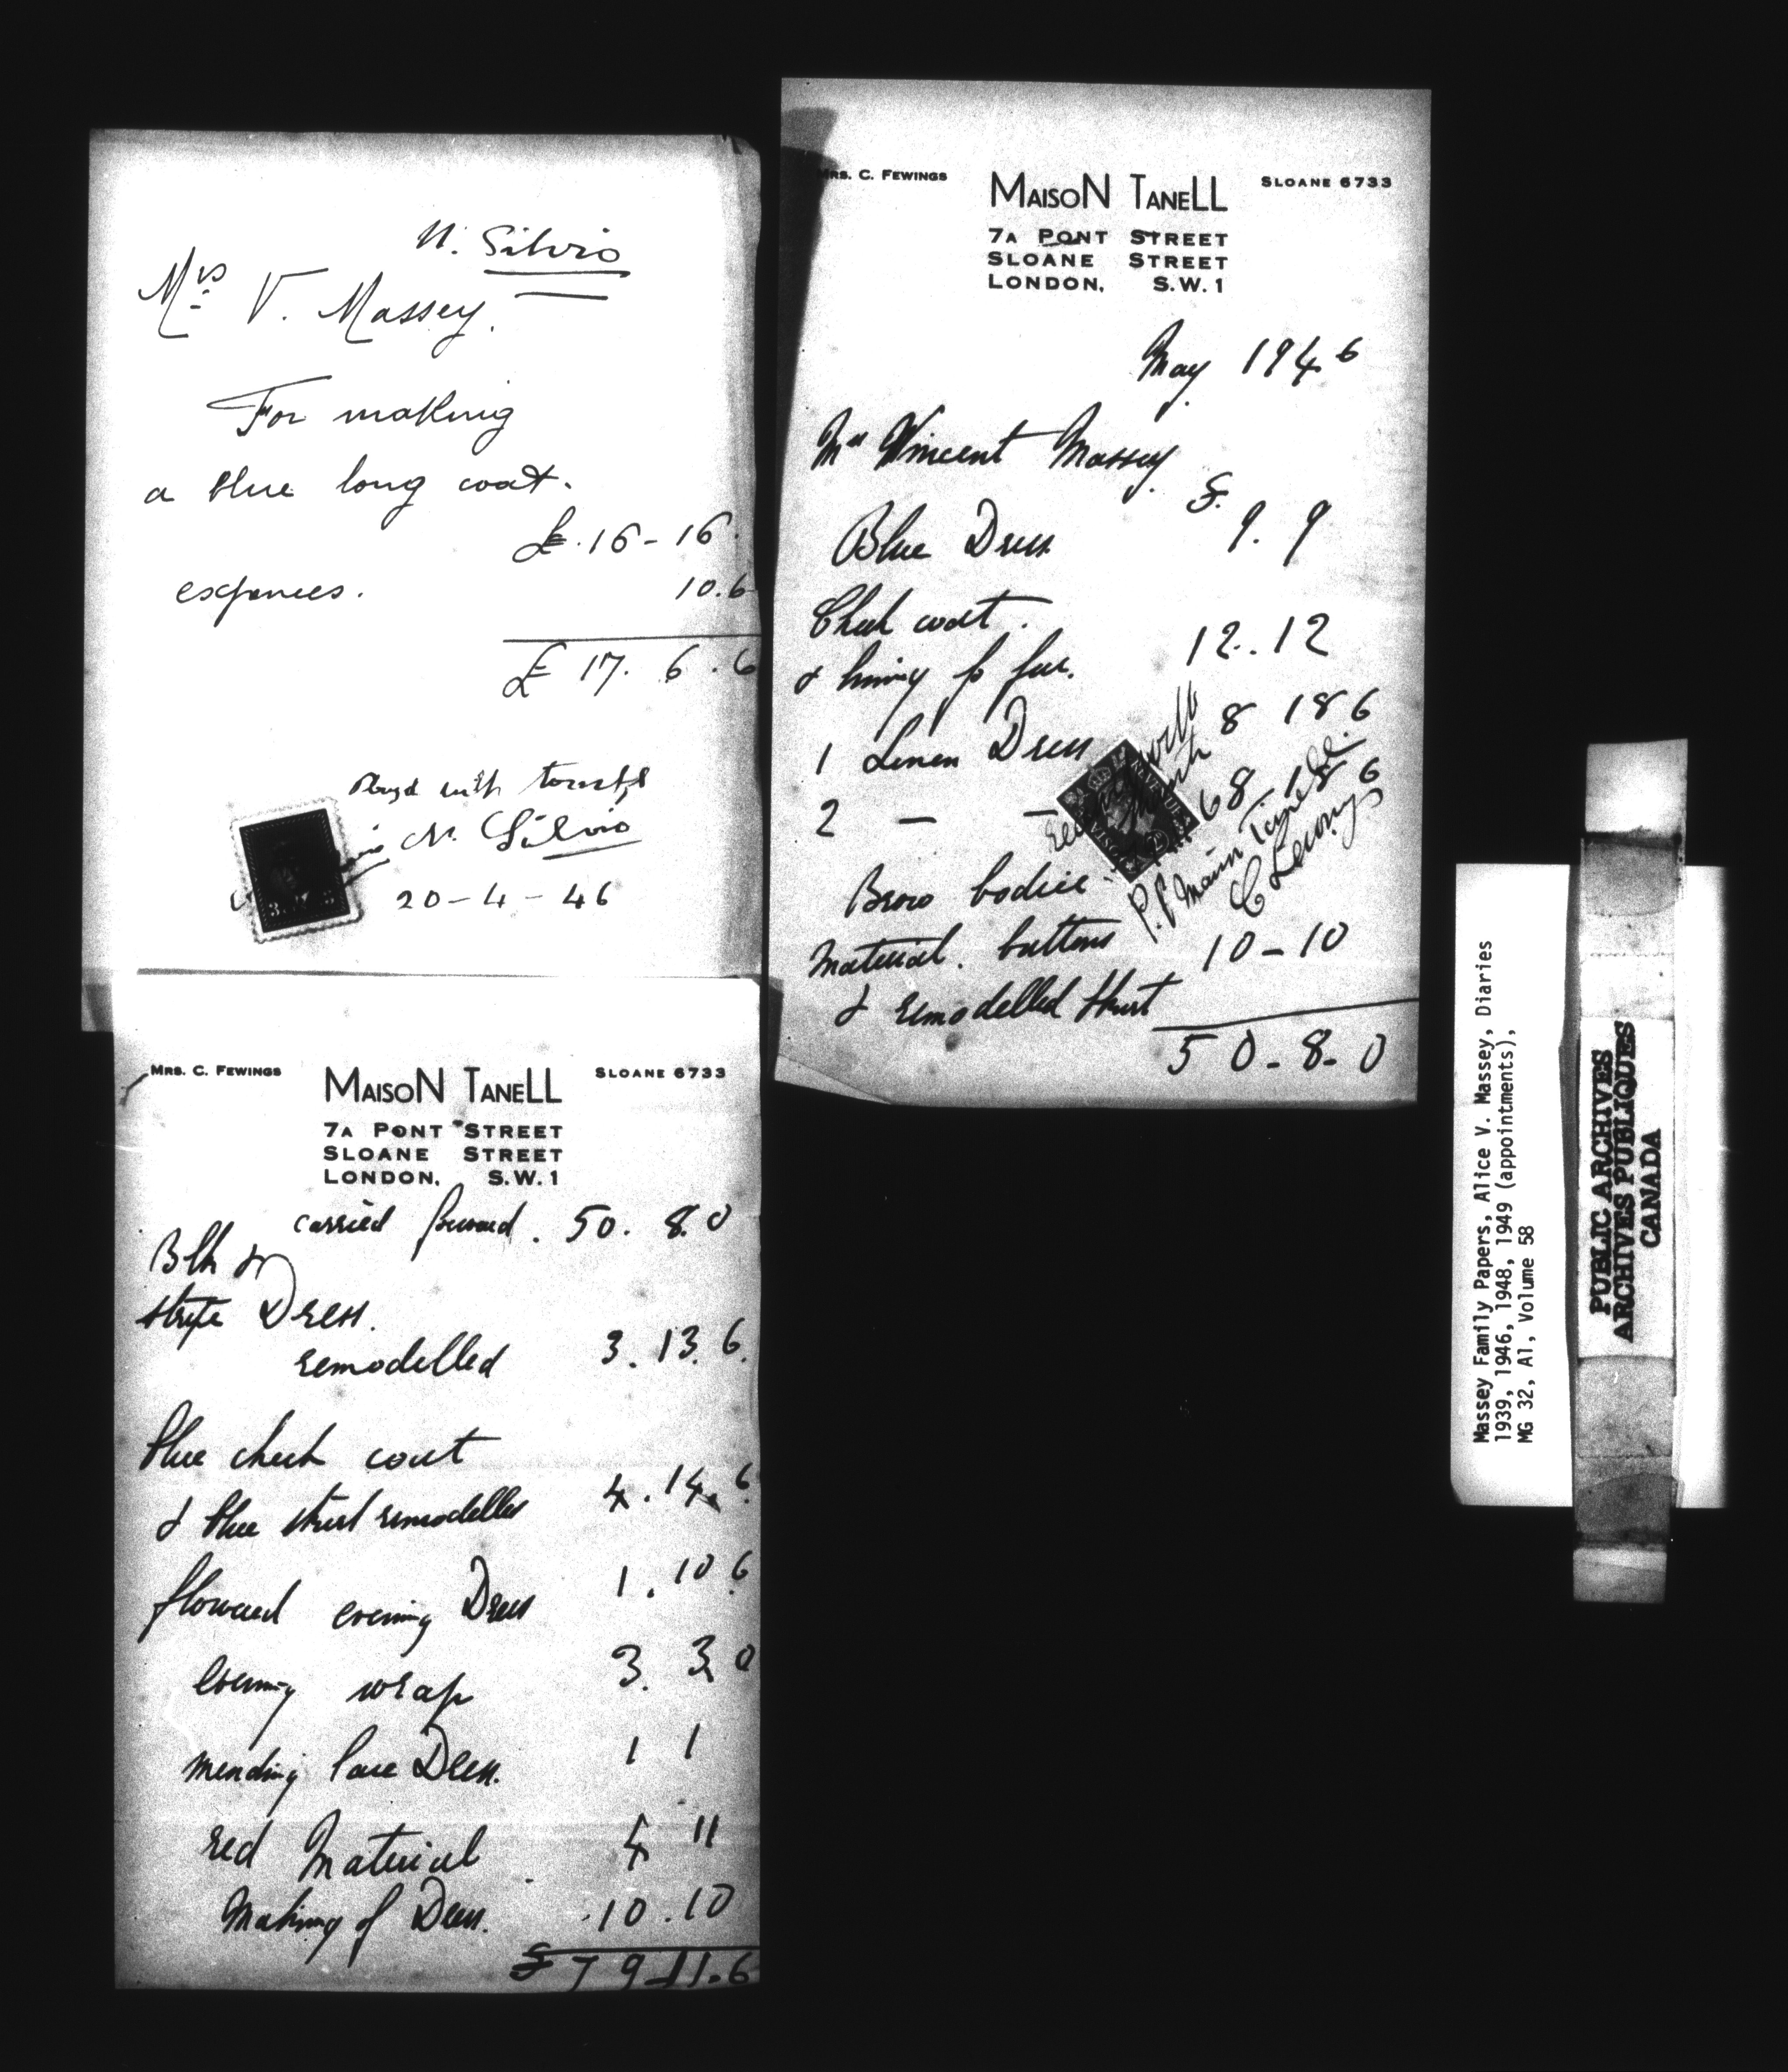 N. Silvio
Mrs V. Massey.
For making
a blue long coat.
£.16-16.
expences. 10.6
£ 17. 6.6
Payd with
N. Silvio
20-4-46
Mrs. C. Fewings MaisoN TaneLL Sloane 6733
7A Pont Street
Sloane Street
London, S.W.1
May 1946
Mrs Vincent Massey.
£.
Blue Dress 9. 9
Check coat.
& lining for fur. 12..12
1 Linen Dress 8 18 6
2 — — 8 18 6
Brow bodice
Material. buttons 10-10
& remodelled skirt
50-8-0
Mrs. C. Fewings MaisoN TaneLL Sloane 6733
7A Pont Street
Sloane Street
London, S.W.1
carried forward. 50. 8.0
Blk &
stripe Dress.
remodelled 3.13.6.
Blue check coat
& blue skirt remodelled 4.14.6.
flowered evening Dress 1.10 6
Evening wrap 3. 3 0
mending lace Dress. 1 1
red Material 4 11
Making of Dress. 10.10
£79-11.6
Massey Family Papers, Alice V. Massey, Diaries
1939, 1946, 1948, 1949 (appointments),
MG 32, A1, Volume 58
PUBLIC ARCHIVES
ARCHIVES PUBLIQUES
CANADA